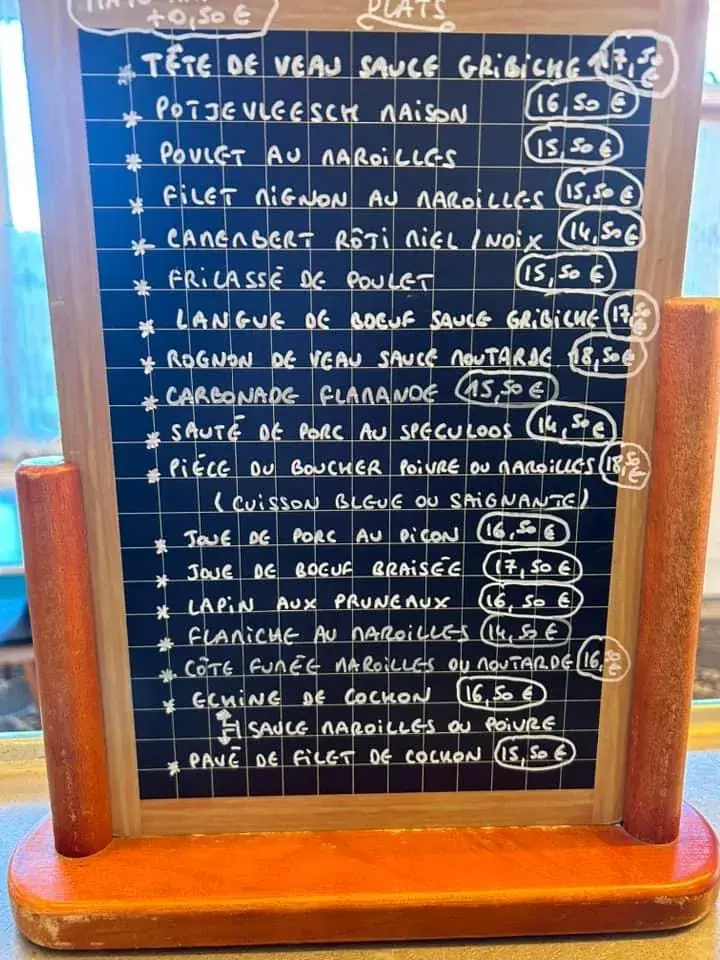 +0,50 €
PLATS
* TÊTE DE VEAU SAUCE GRIBICHE 17,50 €
* POTJEVLEESCH MAISON 16,50 €
* POULET AU MAROILLES 15,50 €
* FILET MIGNON AU MAROILLES 15,50 €
* CAMEMBERT RÔTI MIEL / NOIX 14,50 €
* FRICASSÉ DE POULET 15,50 €
* LANGUE DE BOEUF SAUCE GRIBICHE 17,50
* ROGNON DE VEAU SAUCE MOUTARDE 18,50 €
* CARBONADE FLAMANDE 15,50 €
* SAUTÉ DE PORC AU SPECULOOS 14,50 €
* PIÈCE DU BOUCHER POIVRE OU MAROILLES 18,50 €
(CUISSON BLEUE OU SAIGNANTE)
* JOUE DE PORC AU PICON 16,50 €
* JOUE DE BOEUF BRAISÉE 17,50 €
* LAPIN AUX PRUNEAUX 16,50 €
* FLAMICHE AU MAROILLES 14,50 €
* CÔTE FUMÉE MAROILLES OU MOUTARDE 16,
* ECHINE DE COCHON 16,50 €
SAUCE MAROILLES OU POIVRE
* PAVÉ DE FILET DE COCHON 15,50 €